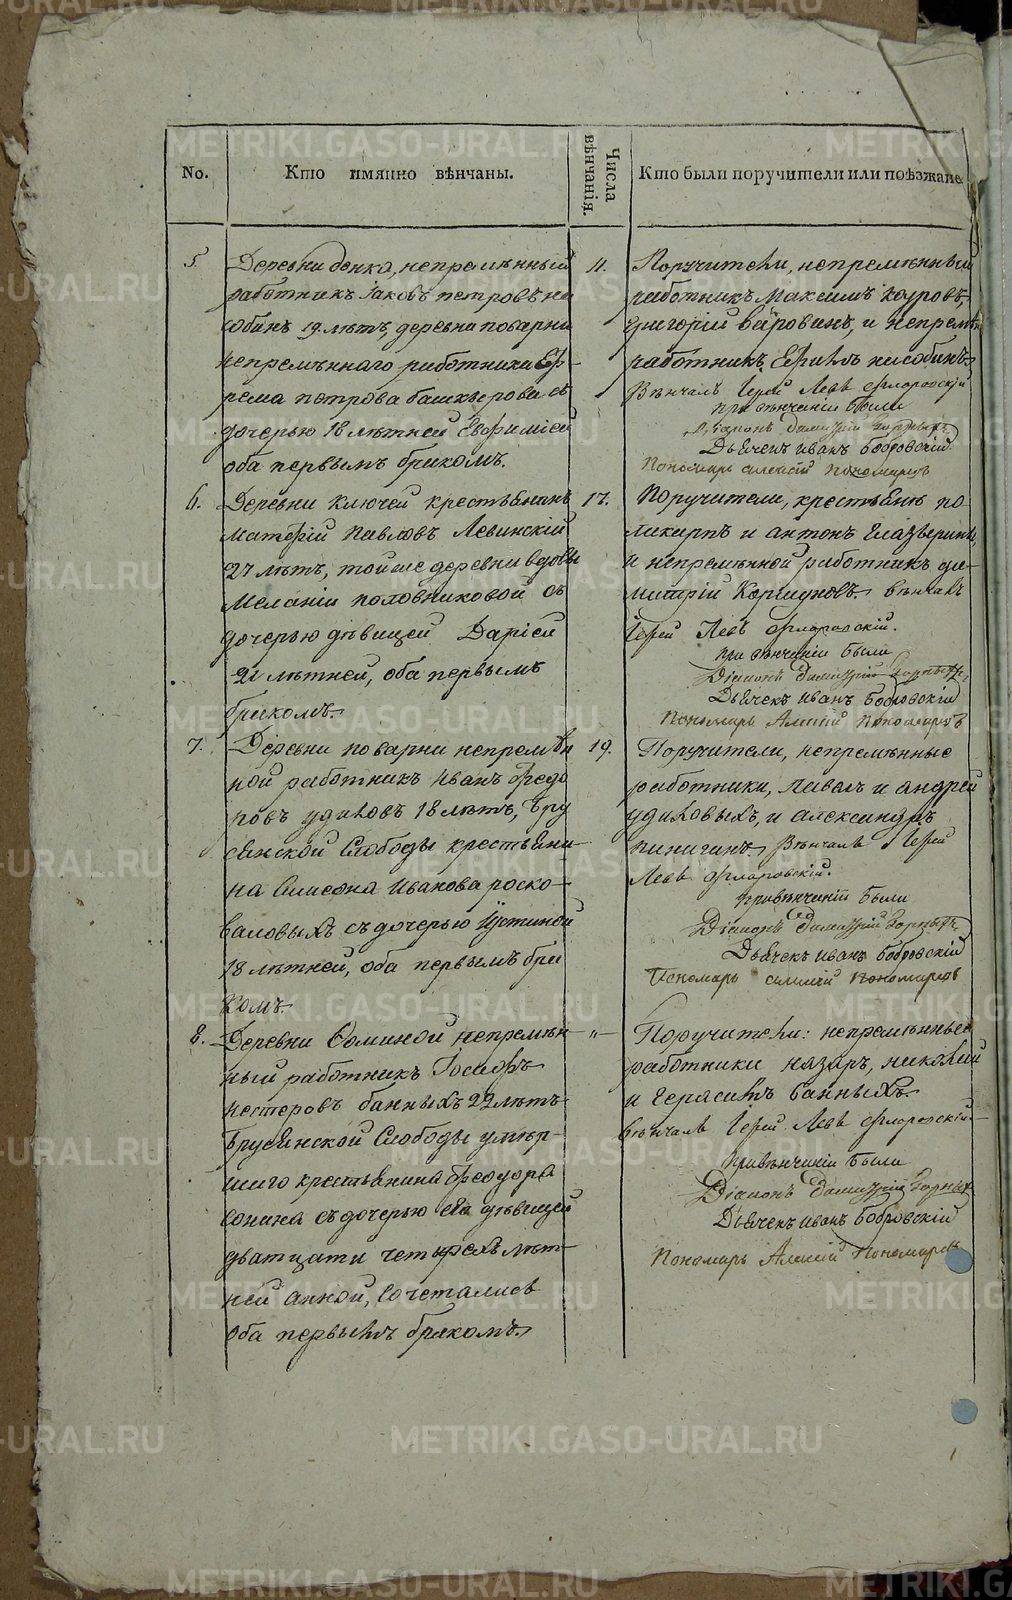 No.
Кто имянно вѣнчаны.
Числа вѣнчанія.
Кто были поручители или поѣзжане
5.
Деревни бенка, непремѣнный
работникъ Іаковъ петровъ
19 лѣтъ, деревни поварни
непремѣннаго работника Еф-
рема петрова башкирова съ
дочерью 18 лѣтней Евфиміей
оба первымъ бракомъ.
11.
Поручители, непремѣнный
работникъ Максимъ кауровъ,
григорій варовинъ, и непремѣ
работникъ Ефимъ
Вѣнчалъ Іерей Левъ Флоровскій
при вѣнчаніи были
Діаконъ Димитрій Горныхъ
Дьячекъ иванъ бобровскій
Пономарь алексій пономаревъ
6.
Деревни ключей крестьянинъ
матфій павловъ Левинскій
27 лѣтъ, тойже деревни вдовы
Меланіи половниковой съ
дочерью дѣвицей Даріей
21 лѣтней, оба первымъ
бракомъ.
17.
Поручители, крестьянѣ по-
ликарпъ и антонъ глазырины,
и непремѣнной работникъ ди-
митрій Коршуновъ. вѣнчалъ
Іерей Левъ Флоровскій.
при вѣнчаніи были
Діаконъ Димитрій Горныхъ
Дьячекъ иванъ Бобровскій
Пономарь Алексій Пономаревъ
7.
Деревни поварни непремѣн
ной работникъ иванъ федо
ровъ удиловъ 18 лѣтъ, бру
сянской Слободы крестьяни-
на Симеона Иванова роско-
валовыхъ съ дочерью Иустиной
18 лѣтней, оба первымъ бра
комъ.
19.
Поручители, непремѣнные
работники, павелъ и андрей
удиловыхъ, и александръ
пинигинъ. Вѣнчалъ Іерей
Левъ Флоровскій.
при вѣнчаніи были
Діаконъ Димитрій Горныхъ
Дьячекъ иванъ бобровскій
Пономарь алексій пономаревъ
8.
Деревни Фоминой непремѣн-
ный работникъ Іосифъ
нестеровъ банныхъ 22 лѣтъ
брусянской Слободы умер-
шаго крестьянина феодора
сонина съ дочерью его дѣвицей
дватцати четырехъ лѣт-
ней анной, сочетались
оба первымъ бракомъ.
"—
Поручители: непремѣнные
работники назаръ, николай
и герасимъ банныхъ.
вѣнчалъ Іерей Левъ Флоровскій
при вѣнчаніи были
Діаконъ Димитрій Горныхъ
Дьячекъ иванъ бобровскій
Пономарь Алексій Пономаревъ
METRIKI.GASO-URAL.RU